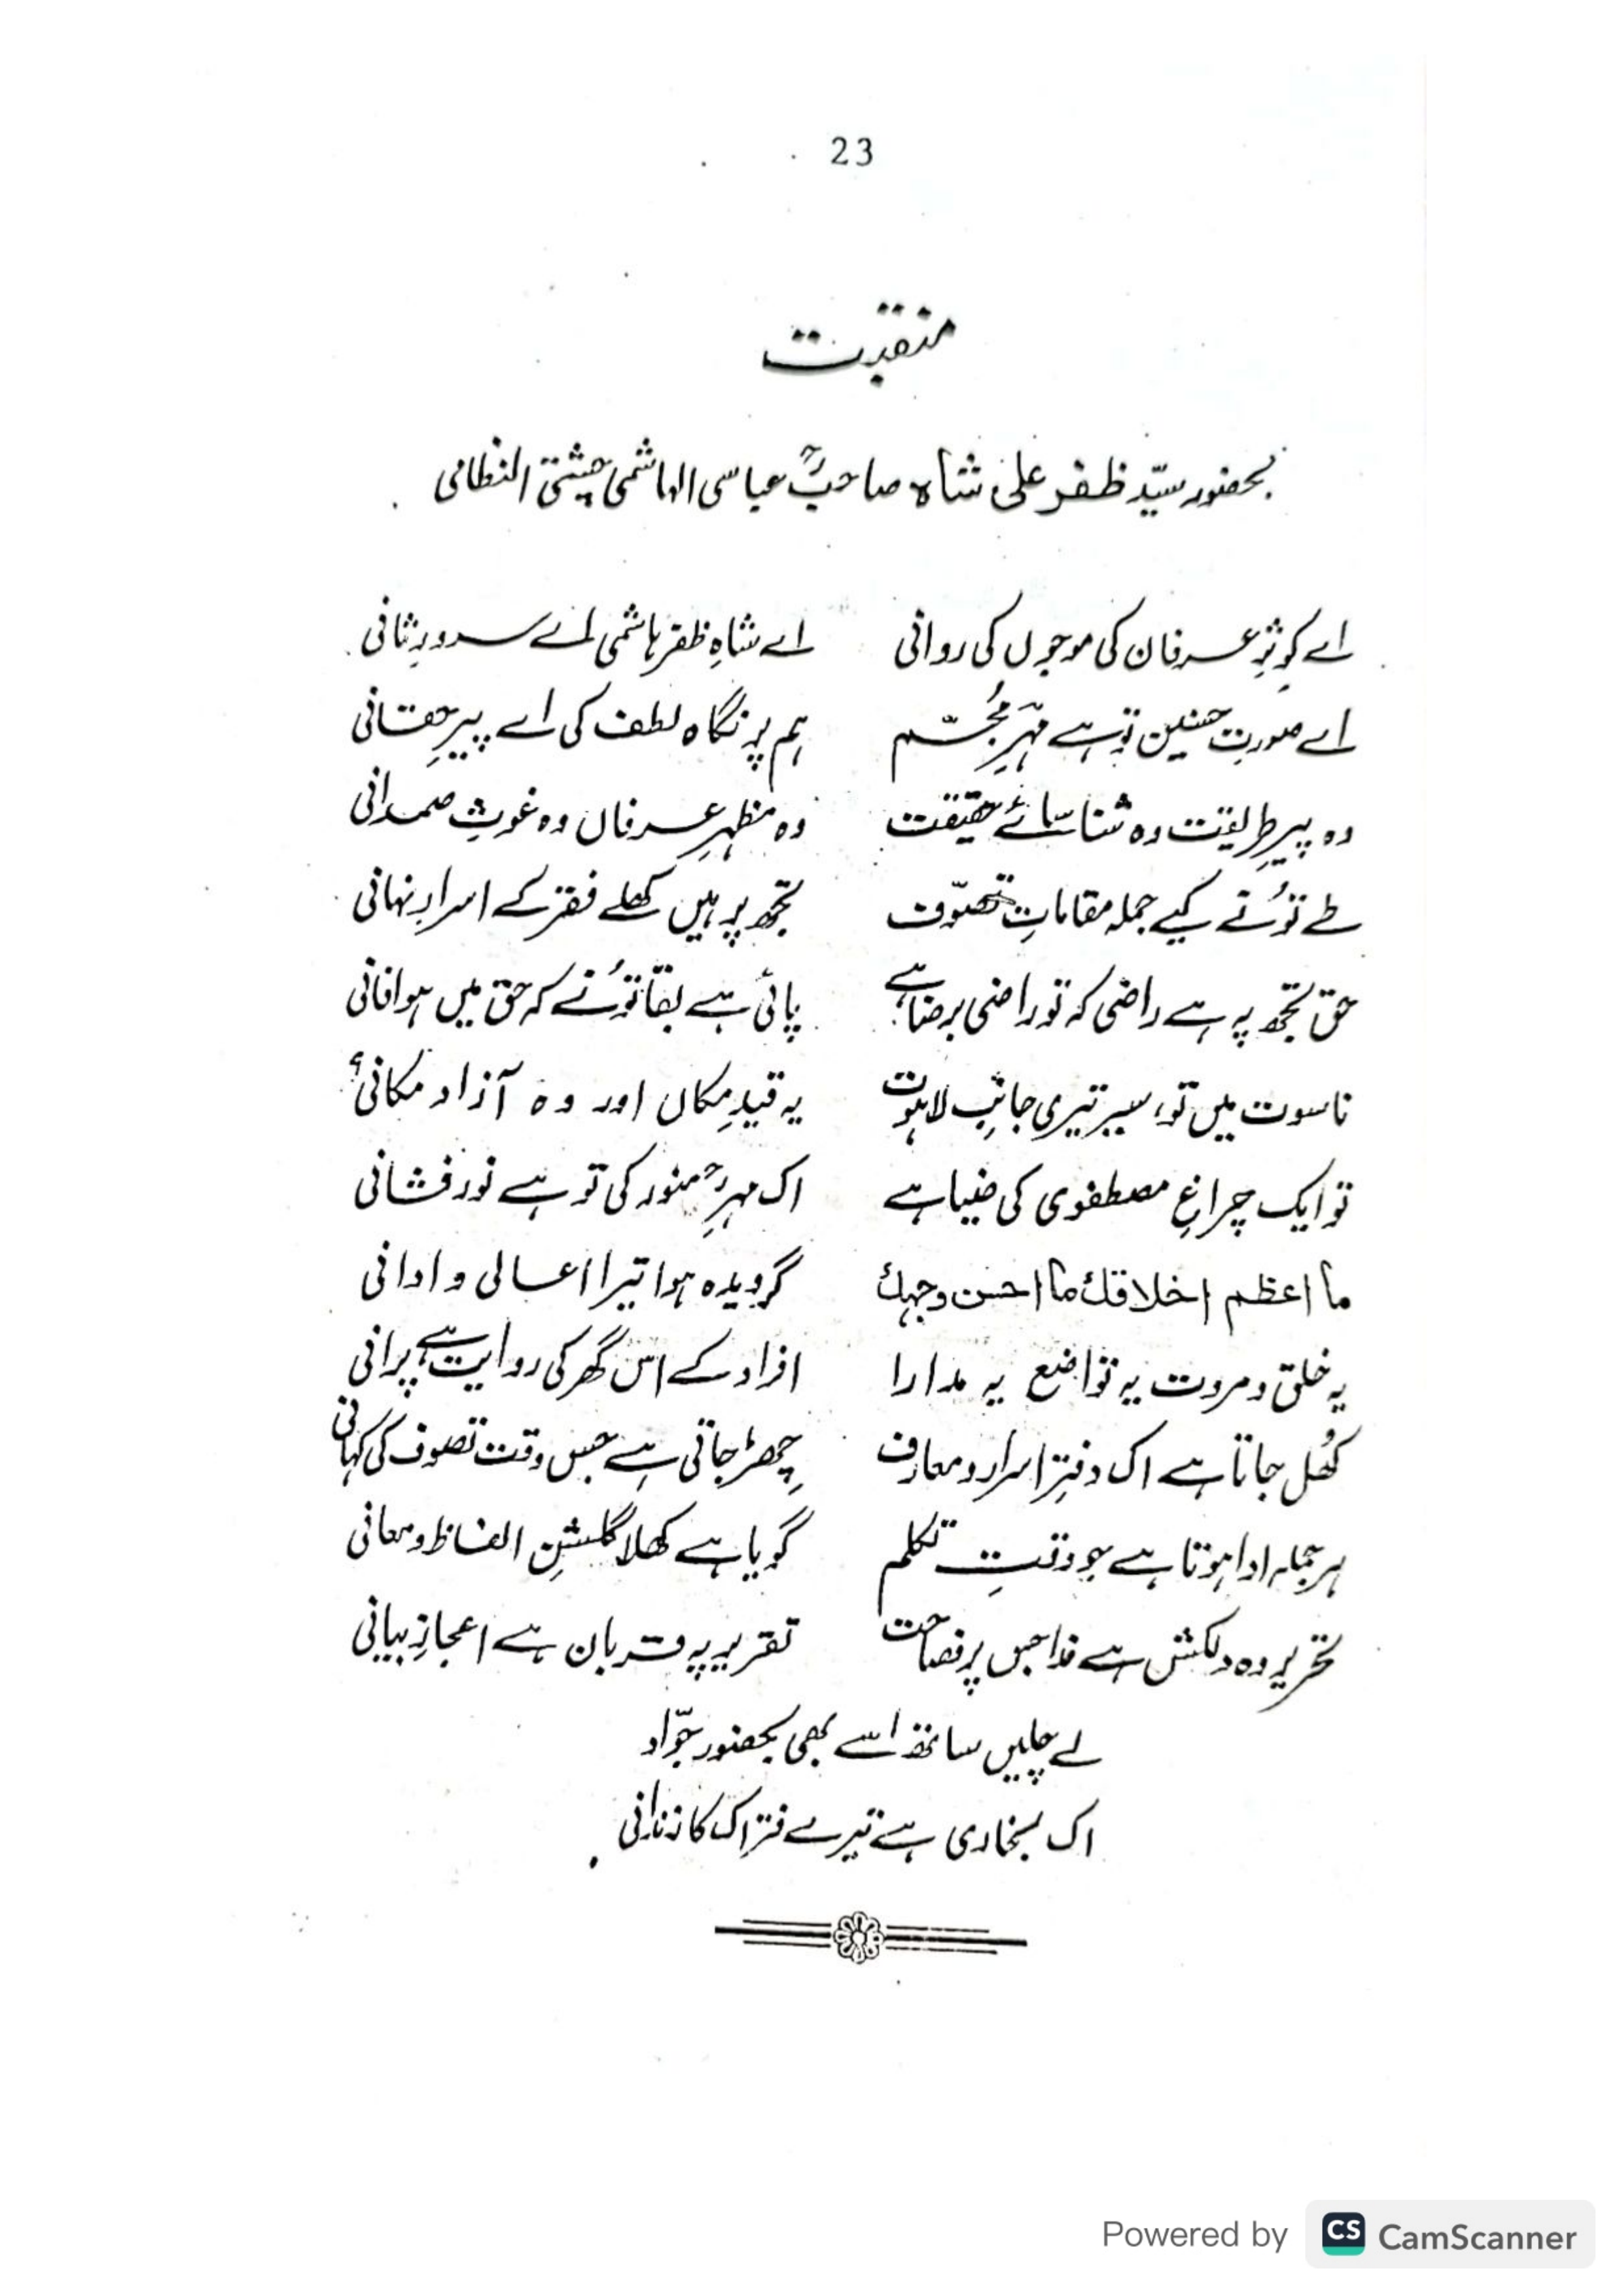 23
منقبت
بحضور سیّد ظفر علی شاہ صاحبؒ عباسی الہاشمی چشتی النظامی
اے کوثرِ عرفان کی موجوں کی روانی اے شاہِ ظفر ہاشمی اے سرورِ ثانی
اے صورتِ حسنین تو ہے مہرِ مجُسّم ہم پر نگاہ لطف کی اے پیرِ حقانی
وہ پیرِ طریقت وہ شناسائے حقیقت وہ مظہرِ عرفاں وہ غوثِ صمدانی
طے توُنے کیے جملہ مقاماتِ تصوّف تجھ پر ہیں کھلے فقر کے اسرارِ نہانی
حق تجھ پہ ہے راضی کہ تو راضی برضا ہے پائی ہے بقا توُنے کہ حق میں ہوا فانی
ناسوت میں تو، سیر تیری جانبِ لاہوت یہ قیدِ مکاں اور وہ آزاد مکانی
تو ایک چراغِ مصطفوی کی ضیا ہے اک مہرِ منور کی تو ہے نور فشانی
ما اعظم اخلاقك ما احسن وجہك گرویدہ ہوا تیرا اعالی و ادانی
یہ خلق و مروت یہ تواضع یہ مدارا افراد کے اس گھر کی روایت ہے پرانی
کھُل جاتا ہے اک دفترِ اسرار و معارف چھِڑ جاتی ہے جس وقت تصوف کی کہانی
ہر جملہ ادا ہوتا ہے جو وقتِ تکلم گویا ہے کھلا گلشنِ الفاظ و معانی
تحریر وہ دلکش ہے فدا جس پر فصاحت تقریر پہ قربان ہے اعجازِ بیانی
لے چلیں ساتھ اسے بھی بحضور جوّاد
اک بخاری ہے تیرے فتراک کا زندانی
Powered by CS CamScanner